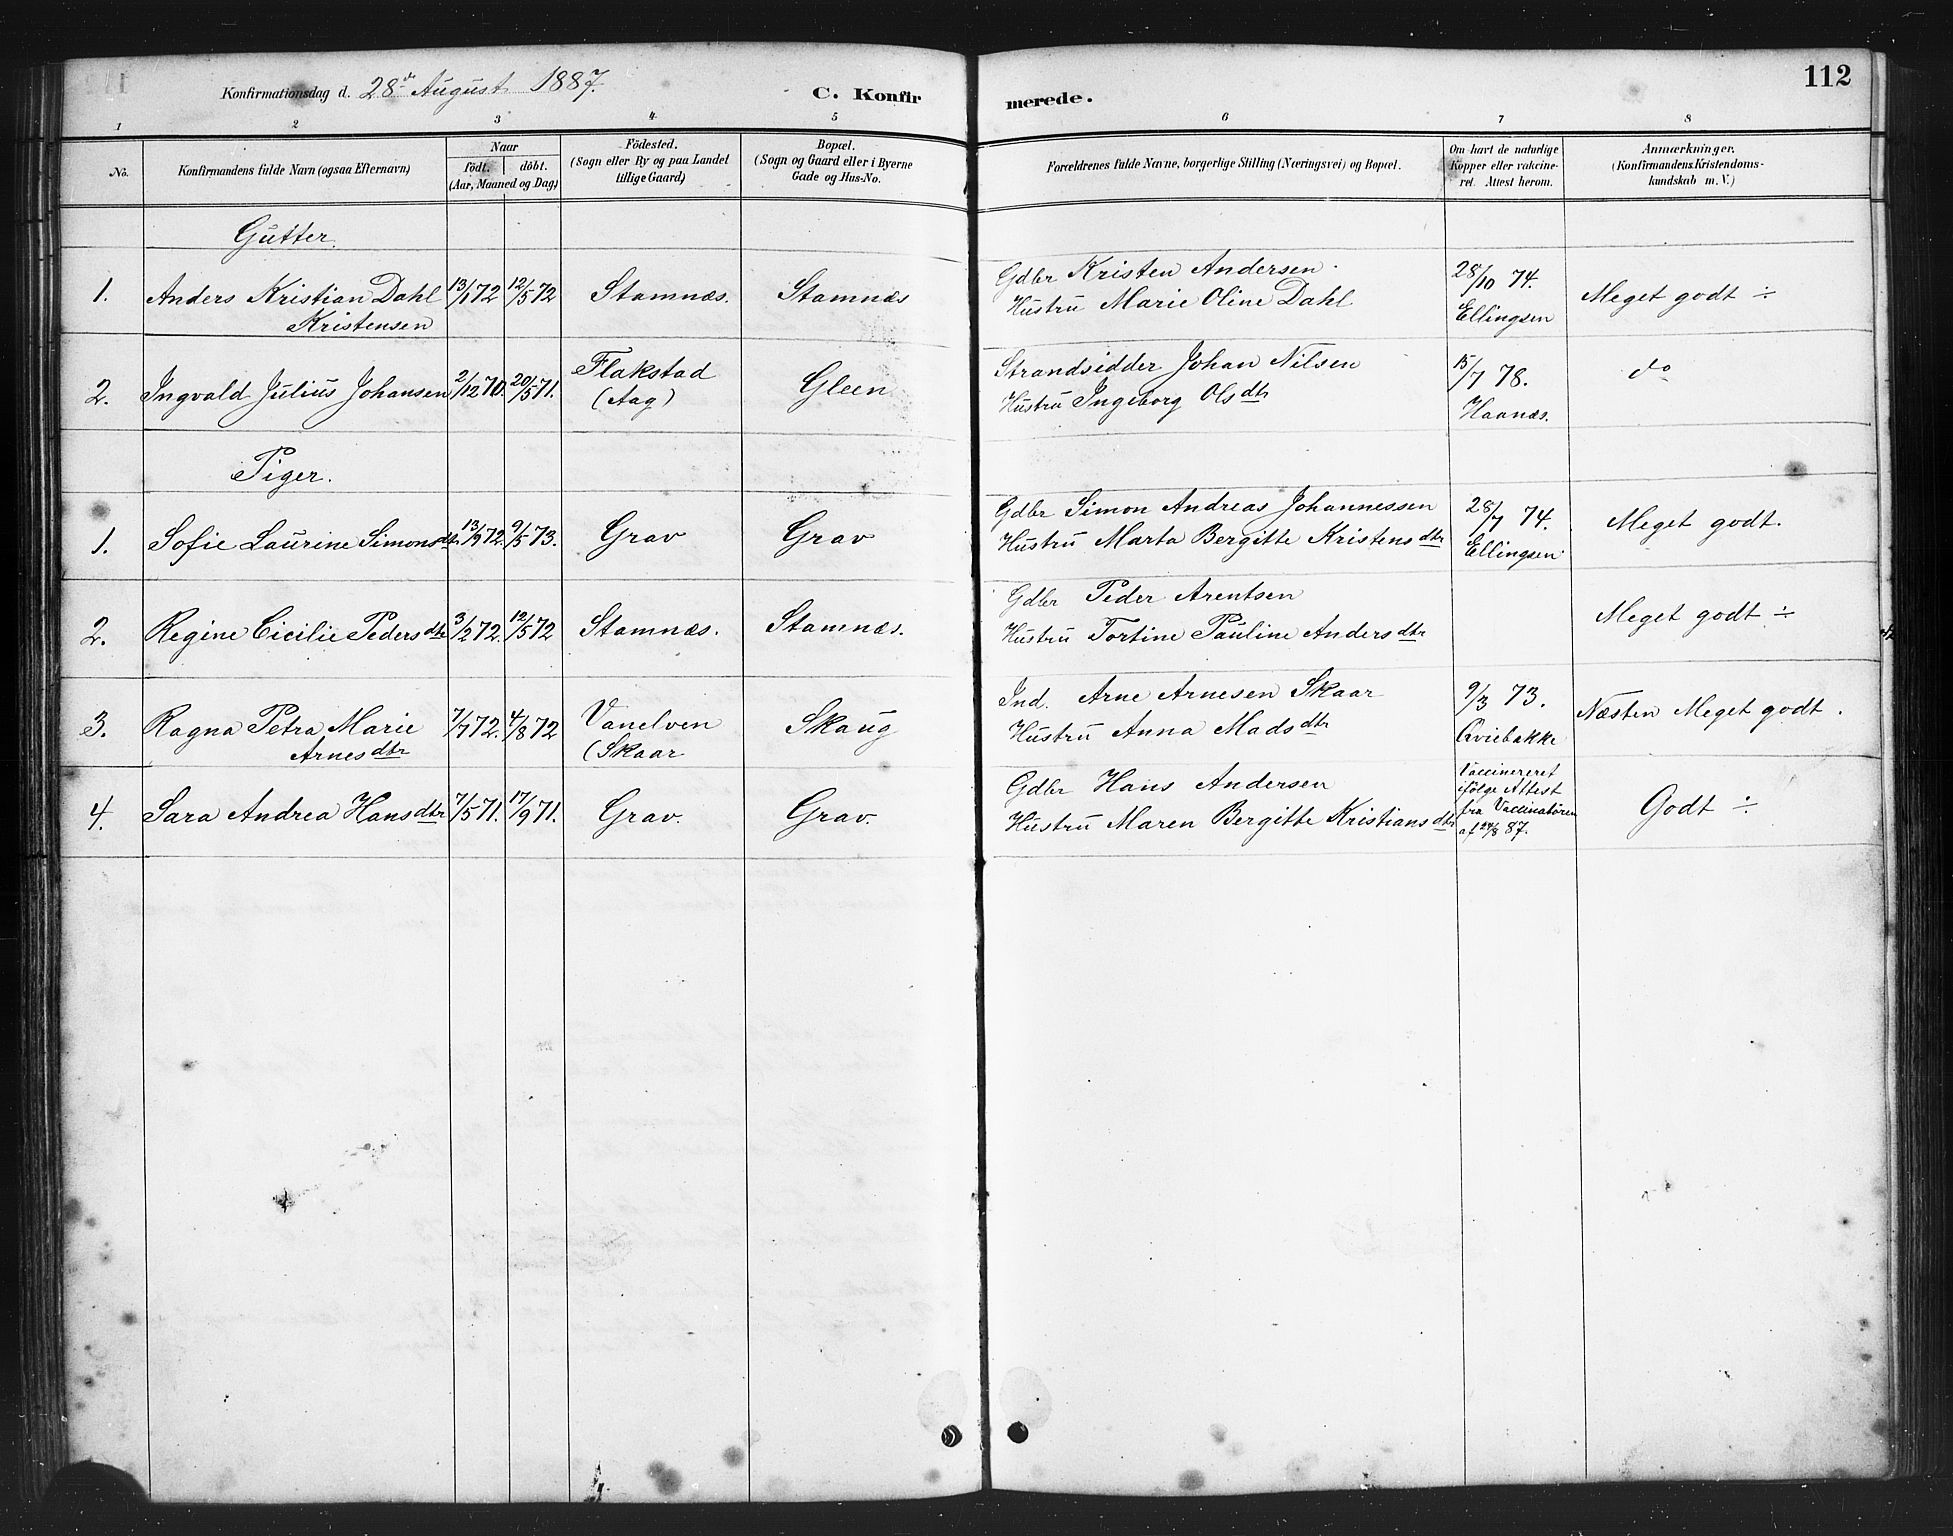 Konfirmationsdag d. 28de August 1887. C. Konfirmerede. 112
1 2 3 4 5 6 7 8
No.
Konfirmandens fulde Navn (ogsaa Efternavn)
Naar
födt. döbt.
(Aar, Maaned og Dag)
Födested.
(Sogn eller By og paa Landet
tillige Gaard)
Bopæl.
(Sogn og Gaard eller i Byerne
Gade og Hus-No.
Forældrenes fulde Navne, borgerlige Stilling (Næringsvei) og Bopæl.
Om havt de naturlige
Kopper eller vakcine-
ret. Attest herom.
Anmærkninger.
(Konfirmandens Kristendoms-
kundskab m. V.)
Gutter.
1. Anders Kristian Dahl 13/1 72 12/5 72 Stamnæs. Stamnæs
Kristensen
Gdbr Kristen Andersen.
Hustru Marie Oline Dahl
28/10 74.
Ellingsen
Meget godt ÷
2. Ingvald Julius Johansen 2/12 70. 20/5 71. Flakstad
(Aag)
Gleen
Strandsidder Johan Nilsen
Hustru Ingeborg Olsdtr
15/7 78.
Haanæs.
do
Piger.
1. Sofie Laurine Simonsdtr 13/9 72. 9/5 73. Grav Grav
Gdbr Simon Andreas Johannessen
Hustru Marta Bergitte Kristensdtr
28/7 74.
Ellingsen
Meget godt.
2. Regine Cicilie Pedersdtr 3/2 72. 12/5 72 Stamnæs. Stamnæs.
Gdbr Peder Arentsen
Hustru Tortine Pauline Andersdtr
Meget godt ÷
3. Ragna Petra Marie 7/7 72. 4/8 72 Vanelven Skaug
Arnesdtr
(Skaar
Ind. Arne Arnesen Skaar
Hustru Anna Madsdtr
9/3 73.
Qviebakke
Næsten Meget godt.
4. Sara Andrea Hansdtr 7/5 71. 17/9 71. Grav. Grav.
Gdbr Hans Andersen
Hustru Maren Bergitte Kristiansdtr
Vaccineret
ifölge Attest
fra Vaccinatören
af 24/8 87.
Godt ÷